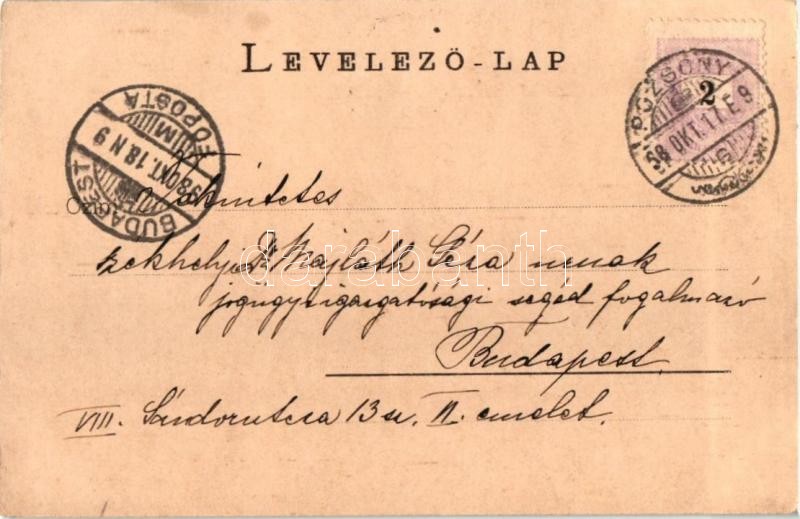 LEVELEZŐ-LAP
POZSONY
98 OKT. 17. E 9
2
BUDAPEST
98 OKT. 18. N 9
FŐPOSTA
Tekintetes
székhelyi Dr Majláth Géza urnak
jogügyi igazgatósági segéd fogalmazó
Budapest.
VIII. Sándorutcza 13 sz. II. emelet.
darabanth